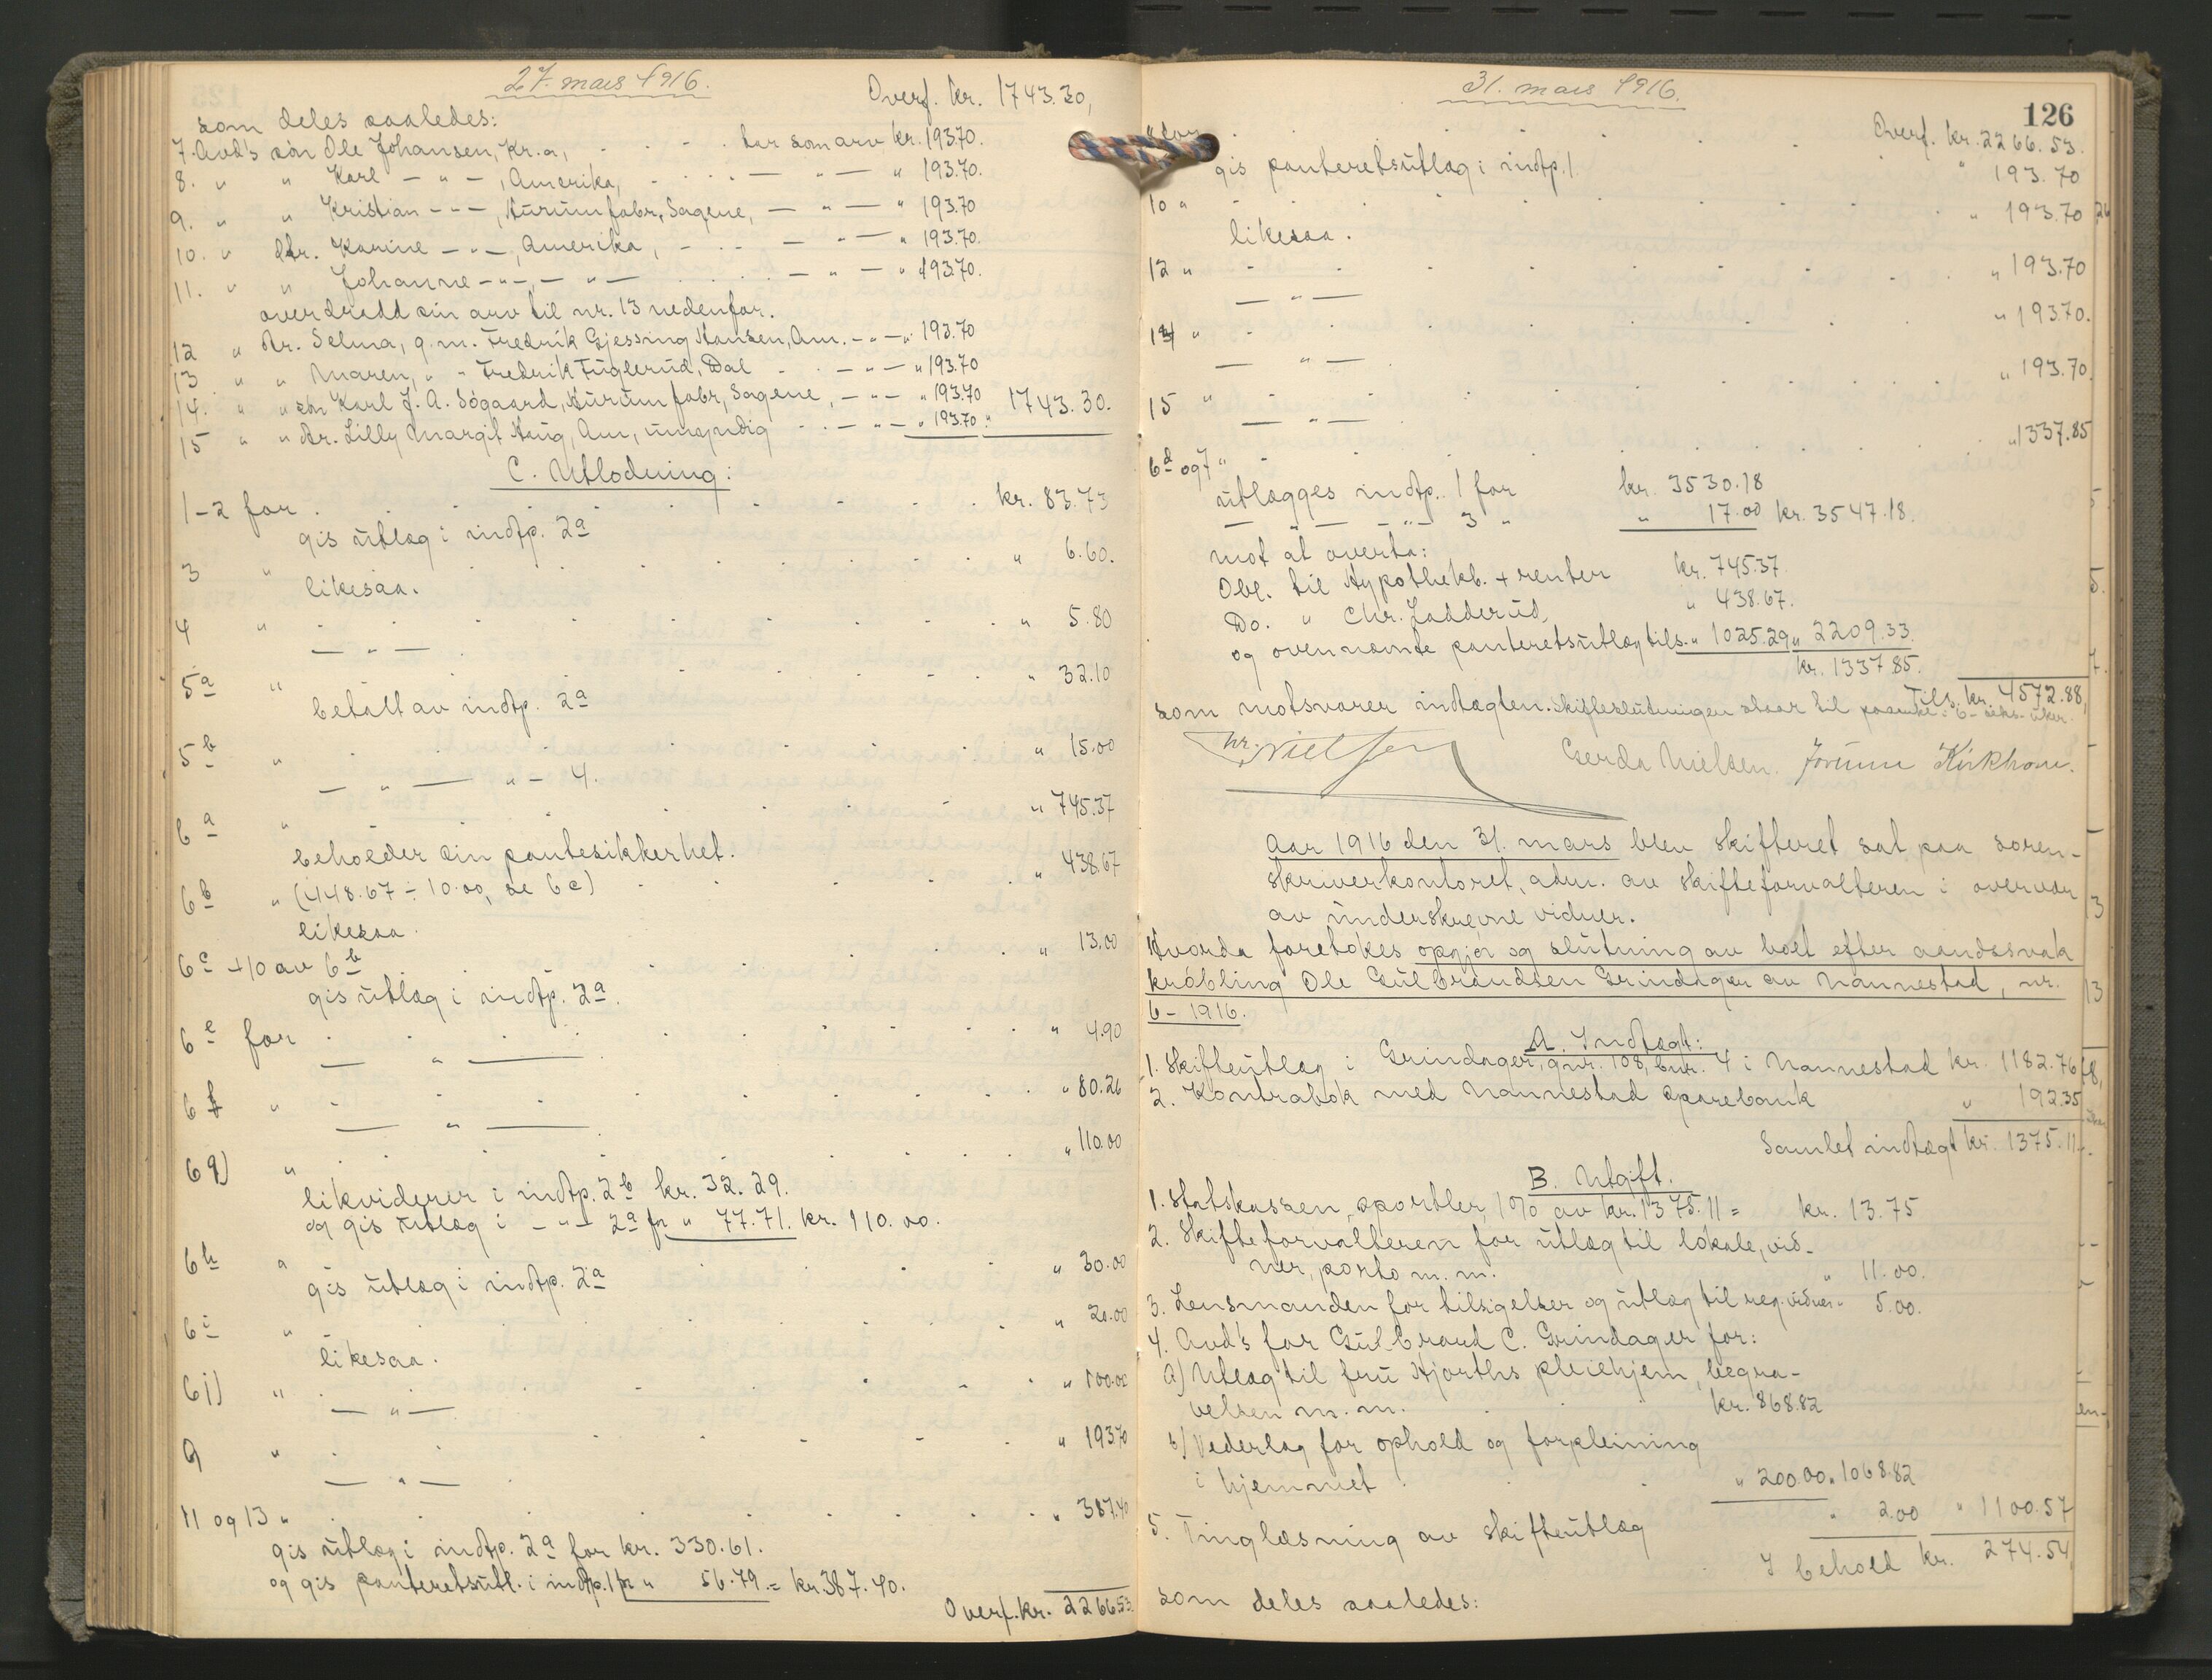 27. mars 1916.
Overf. kr. 1743.30,
som deles saaledes:
7. Avd's søn Ole Johansen, Kr.a, - - - . tar som arv kr. 193.70.
8. " " Karl — " —, Amerika, - . . . — " — " 193.70.
9. " " Kristian - " -, Hurum fabr, Sagene, — " — " 193.70
10. " dtr. Karine — " —, Amerika, - . . — " — " 193.70.
11. " " Johanne - " -, — " — . . — " — " 193.70.
overdradd sin arv til nr. 13 nedenfor.
12 " dtr. Selma, g.m. Fredrik Gjessing Hansen, Am. - " - " 193.70
13 " " Maren, " " Fredrik Fuglerud, Dal . . — " — " 193.70
14. " " søn Karl J. A. Sögaard, Hurum fabr, Sagene, - " - " 193.70
15 " " dtr. Lilly Margit Haug, Am, umyndig . . — " — " 193.70 " 1743.30.
C. Utlodning:
1-2 for . . . . kr. 83.73
gis utlæg i indtp. 2a
3 " . . . " 6.60.
likesaa.
4 " . . . " 5.80
— " — .
5a " . . . " 32.10
betalt av indtp. 2a
5b " . . . " 15.00
— " — " — 4.
6a " . . . " 745.37
beholder sin pantesikkerhet.
6b " (448.67 ÷ 10.00, se 6c) . . " 438.67
likesaa.
6c +10 av 6b . . . " 13.00
gis utlæg i indtp. 2a.
6e for . . . " 4.90
— " —
6f " . . . " 80.26
— " —
6g) " . . . " 110.00
likviderer i indtp. 2b kr. 32.29.
og gis utlæg i - " - 2a for " 77.71. kr. 110.00.
6h " . . . " 30.00
gis utlæg i indtp. 2a
6i " . . . " 20.00
likesaa.
6j) " . . . " 100.00
— " —
9 " . . . " 193.70
— " —
11 og 13 " . . . " 387.40
gis utlæg i indtp. 2a for kr. 330.61.
og gis panteretsutl. i indtp. 1 for " 56.79 = kr. 387.40.
Overf. kr. 2266.53.
31. mars 1916.
126
Overf. kr. 2266.53.
8 for . . . " 193.70
gis panteretsutlæg i indtp. 1.
10 " . . . " 193.70
likesaa.
12 " . . . " 193.70
— " —
14 " . . . " 193.70.
— " —
15 " . . . " 193.70.
— " —
6d og 7 " . . . " 1337.85
utlægges indtp. 1 for kr. 3530.18
— " — - " - 3 " " 17.00 kr. 3547.18.
mot at overta:
Obl. til Hypothekb. + renter kr. 745.37.
Do. " Chr. Ladderud, " 438.67.
og ovennævnte panteretsutlæg tils. " 1025.29 " 2209.33.
kr. 1337.85.
Tils. kr. 4572.88,
som motsvarer indtægten. Skifteslutningen staar til paaanke i 6 - seks - uker.
Nielsen Gerda Nielsen. Jörunn Kirkhorn.
Aar 1916 den 31. mars blev skifteret sat paa soren-
skriverkontoret, adm. av skifteforvalteren i overvær
av underskrevne vidner.
Hvorda foretokes opgjør og slutning av boet efter aandssvak
krøbling Ole Gulbrandsen Grindager av Nannestad, nr.
6 - 1916.
A. Indtægt:
1. Skifteutlæg i Grindager, gnr. 108, bnr. 4 i Nannestad kr. 1182.76
2. Kontrabok med Nannestad sparebank " 192.35
Samlet indtægt kr. 1375.11.
B. Utgift.
1. Statskassen, sportler, 1% av kr. 1375.11 = kr. 13.75
2. Skifteforvalteren for utlæg til lokale, vid-
ner, porto m. m. " 11.00.
3. Lensmanden for tilsigelser og utlæg til reg. vidner " 5.00.
4. Avd's far Gulbrand C. Grindager for:
a) Utlæg til fru Hjorths pleiehjem, begra-
velsen m. m. . . kr. 868.82
b) Vederlag for ophold og forpleining
i hjemmet . . " 200.00 " 1068.82
5. Tinglæsning av skifteutlæg " 2.00 " 1100.57
I behold kr. 274.54,
som deles saaledes: